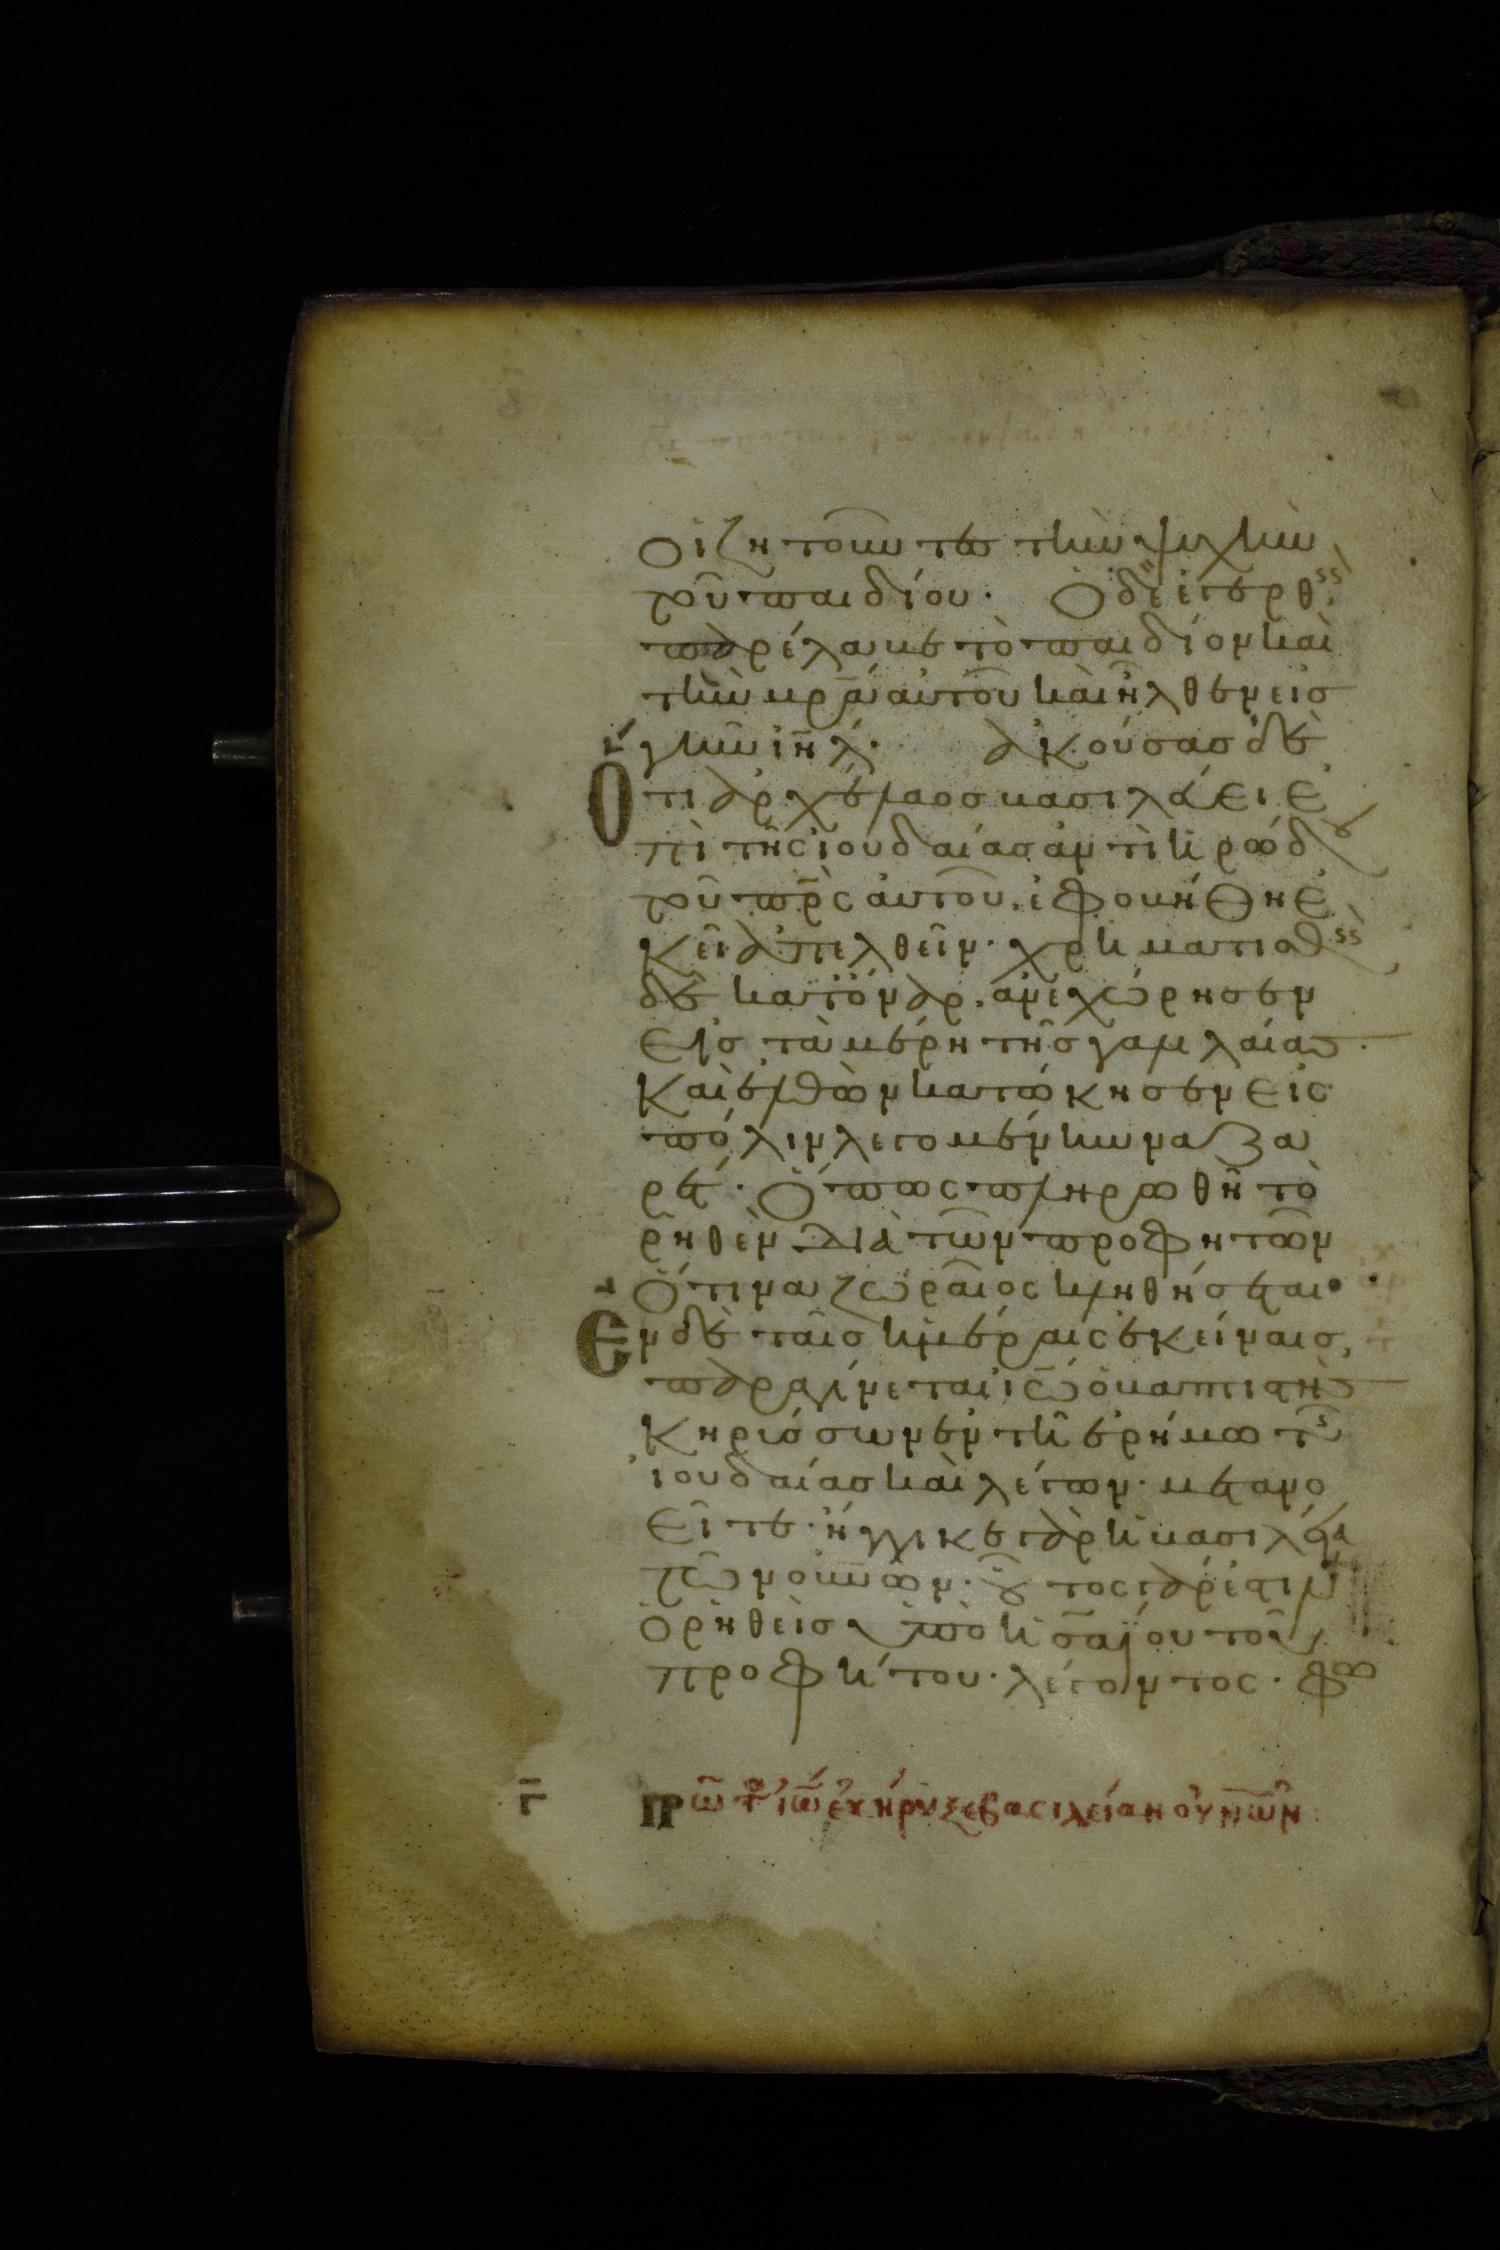 οἱ ζητοῦντες τὴν ψυχὴν
τοῦ παιδίου· Ὁ δὲ ἐγερθεὶς
παρέλαβε τὸ παιδίον καὶ
τὴν μρ̅α αὐτοῦ καὶ ἦλθεν εἰς
γῆν ἰη̅λ· ἀκούσας δὲ
Ὅτι ἀρχέλαος βασιλεύει ἐ
πὶ τῆς ἰουδαίας ἀντὶ ἡρώδου
τοῦ πρ̅ς αὐτοῦ, ἐφοβήθη ἐ
κεῖ ἀπελθεῖν· χρηματισθεὶς
δὲ κατ' ὄναρ, ἀνεχώρησεν
εἰς τὰ μέρη τῆς γαλιλαίας·
Καὶ ἐλθὼν κατώκησεν εἰς
πόλιν λεγομένην ναζα
ρέτ· Ὅπως πληρωθῆ τὸ
ῥηθὲν διὰ τῶν προφητῶν
Ὅτι ναζωραῖος κληθήσεται·
Ἐν δὲ ταῖς ἡμέραις ἐκείναις,
παραγίνεται ἰω̅ ὁ βαπτιστὴς
κηρύσσων ἐν τῆ ἐρήμω τῆς
ἰουδαίας καὶ λέγων· μετανο
εῖτε· ἤγγικε γὰρ ἡ βασιλεία
τῶν οὐν̅ων· οὗτος γάρ ἐστιν
ὁ ῥηθεὶς ὑπὸ ἡσαΐου τοῦ
προφήτου· λέγοντος· φω
γ̅ πρω̅τ ἰω̅ ἐκήρυξε βασιλείαν οὐν̅ων